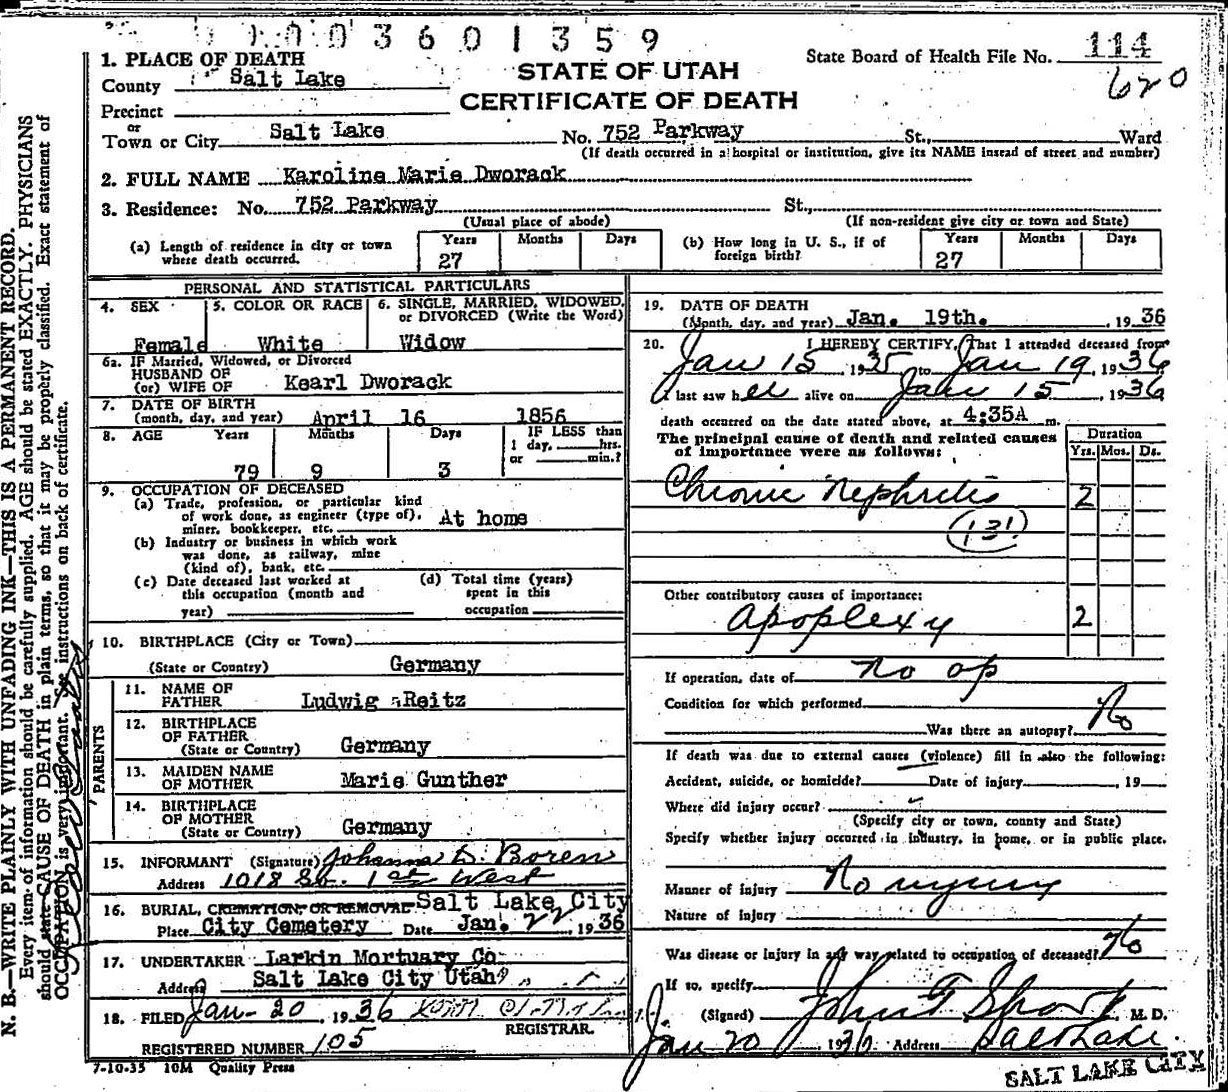 0 0 0 3 6 0 1 3 5 9
State Board of Health File No. 114
620
STATE OF UTAH
CERTIFICATE OF DEATH
1. PLACE OF DEATH
County Salt Lake
Precinct
or
Town or City Salt Lake No. 752 Parkway St., Ward
(If death occurred in a hospital or institution, give its NAME insead of street and number)
2. FULL NAME Karoline Marie Dworack
3. Residence: No. 752 Parkway St.,
(Usual place of abode) (If non-resident give city or town and State)
(a) Length of residence in city or town where death occurred. Years 27 Months Days
(b) How long in U. S., if of foreign birth? Years 27 Months Days
PERSONAL AND STATISTICAL PARTICULARS
4. SEX Female
5. COLOR OR RACE White
6. SINGLE, MARRIED, WIDOWED, or DIVORCED (Write the Word)
Widow
6a. IF Married, Widowed, or Divorced
HUSBAND OF
(or) WIFE OF Kearl Dworack
7. DATE OF BIRTH
(month, day, and year) April 16 1856
8. AGE Years 79 Months 9 Days 3
IF LESS than
1 day, hrs.
or min.?
9. OCCUPATION OF DECEASED
(a) Trade, profession, or particular kind
of work done, as engineer (type of),
miner, bookkeeper, etc. At home
(b) Industry or business in which work
was done, as railway, mine
(kind of), bank, etc.
(c) Date deceased last worked at
this occupation (month and
year)
(d) Total time (years)
spent in this
occupation
10. BIRTHPLACE (City or Town)
(State or Country) Germany
PARENTS
11. NAME OF
FATHER Ludwig Reitz
12. BIRTHPLACE
OF FATHER
(State or Country) Germany
13. MAIDEN NAME
OF MOTHER Marie Gunther
14. BIRTHPLACE
OF MOTHER
(State or Country) Germany
15. INFORMANT (Signature) Johanna D. Boren
Address 1018 So. 1st West
16. BURIAL, CREMATION OR REMOVAL Salt Lake City
Place City Cemetery Date Jan. 22, 1936
17. UNDERTAKER Larkin Mortuary Co
Address Salt Lake City Utah
18. FILED Jan- 20, 1936
REGISTRAR.
REGISTERED NUMBER 105
7-10-35 10M Quality Press
19. DATE OF DEATH
(Month, day, and year) Jan. 19th. , 1936
20. I HEREBY CERTIFY, That I attended deceased from
Jan 15 1935 to Jan 19, 1936
I last saw her alive on Jan 15, 1936
death occurred on the date stated above, at 4;35A m.
The principal cause of death and related causes
of importance were as follows:
Duration
Yrs. Mos. Ds.
Chronic Nephritis 2
(131)
Other contributory causes of importance:
Apoplexy 2
If operation, date of no op
Condition for which performed
Was there an autopsy? No
If death was due to external causes (violence) fill in also the following:
Accident, suicide, or homicide? Date of injury , 19
Where did injury occur?
(Specify city or town, county and State)
Specify whether injury occurred in industry, in home, or in public place.
Manner of injury No injury
Nature of injury
Was disease or injury in any way related to occupation of deceased? No
If so, specify
(Signed) John F Sharp, M. D.
Jan 20 1936 Address Salt Lake.
SALT LAKE CITY
N. B.—WRITE PLAINLY WITH UNFADING INK—THIS IS A PERMANENT RECORD.
Every item of information should be carefully supplied. AGE should be stated EXACTLY. PHYSICIANS
should state CAUSE OF DEATH in plain terms, so that it may be properly classified. Exact statement of
OCCUPATION is very important. See instructions on back of certificate.